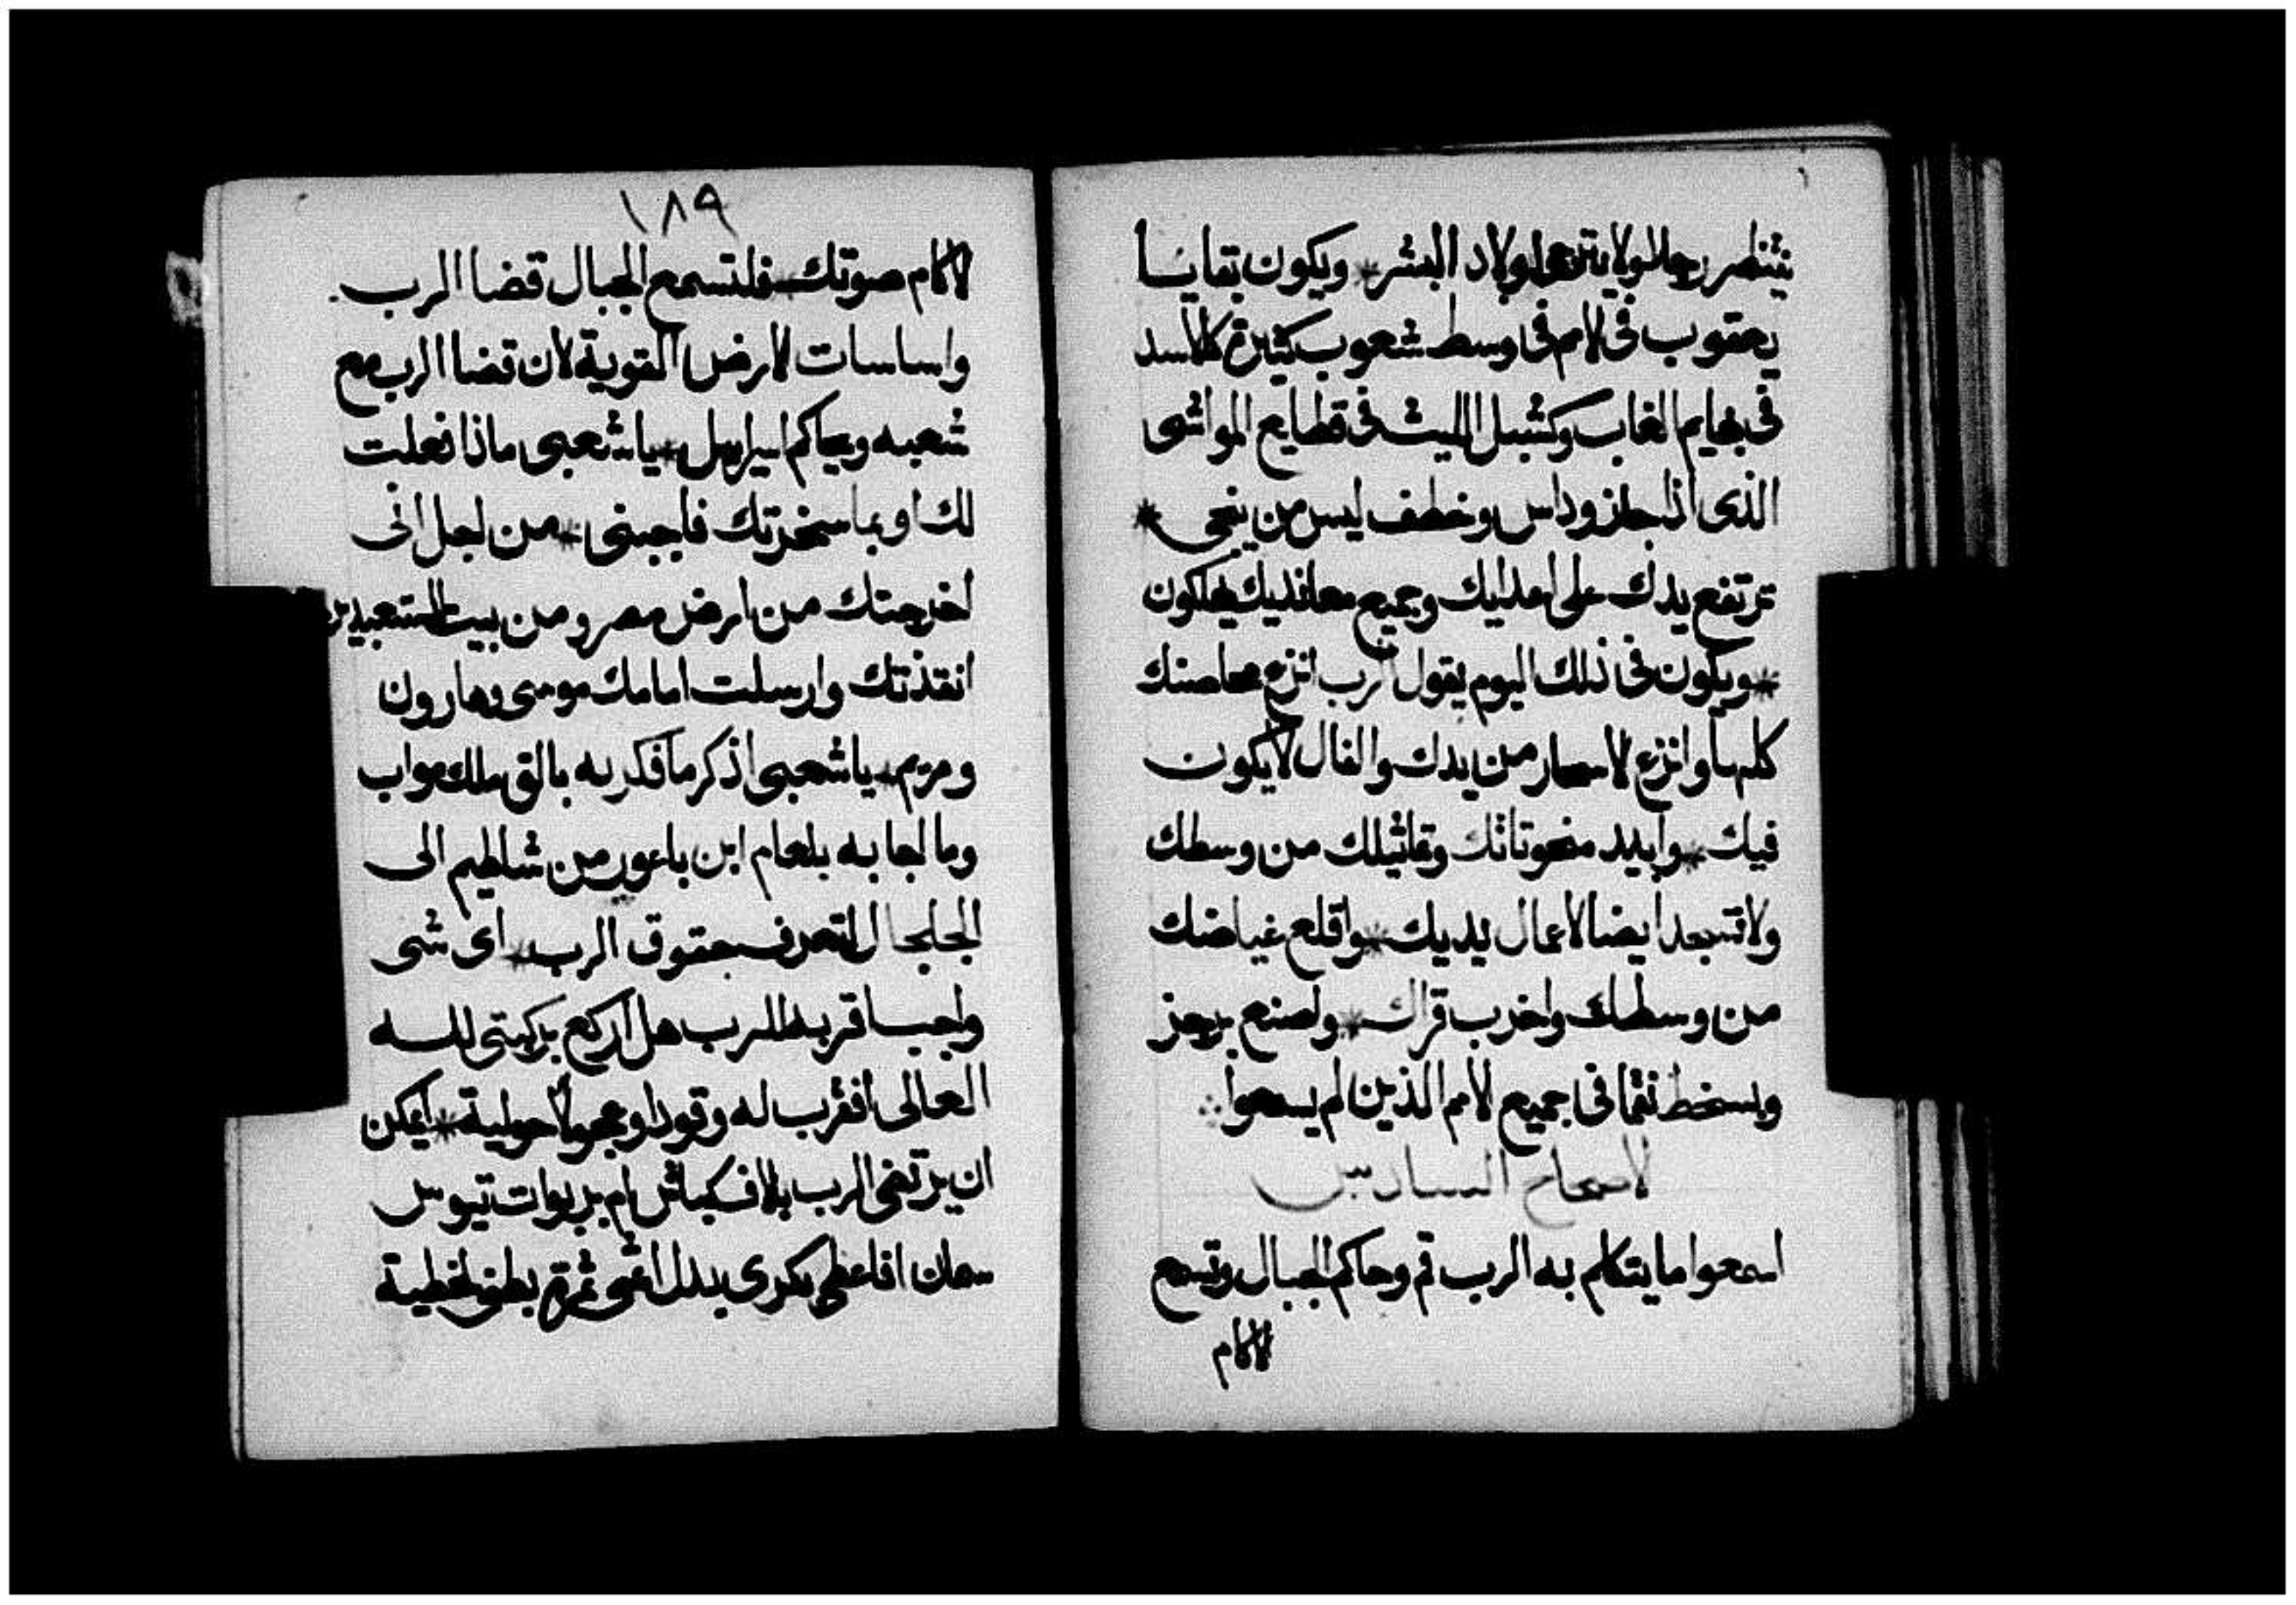 ينتظر رجلا ولا يترجى اولاد البشر * ويكون بقايا
يعقوب في الامم في وسط شعوب كثيرة كالاسد
في بهايم الغاب وكشبل الليث في قطايع المواشي
الذي اذا جاز وداس وخطف ليس من ينجي *
ترتفع يدك على اعدايك وجميع معانديك يهلكون
* ويكون في ذلك اليوم يقول الرب انزع محاصنك
كلها وانزع الاسحار من يدك والفال لا يكون
فيك * وابيد منحوتاتك وتماثيلك من وسطك
ولا تسجد ايضا لاعمال يديك * واقلع غياضك
من وسطك واخرب قراك * واصنع برجز
وبسخط نقما في جميع الامم الذين لم يسمعوا
الاصحاح السادس
اسمعوا ما يتكلم به الرب قم وحاكم الجبال وتسمع
الاكام
١٨٩
الاكام صوتك * فلتسمع الجبال قضا الرب
واساسات الارض القوية لان قضا الرب مع
شعبه ويحاكم اسراييل * يا شعبي ماذا فعلت
لك او بما سخرتك فاجبني * من اجل اني
اخرجتك من ارض مصر ومن بيت المتعبدين
انقذتك وارسلت امامك موسى وهارون
ومريم * يا شعبي اذكر ما فكر به بالق ملك مواب
وما اجابه بلعام ابن باعور من شاطيم الى
الجلجال لتعرف حقوق الرب * اي شي
واجبا قربه للرب هل اركع بركبتي لله
العالي افقرب له وقودا وعجولا حولية * ايمكن
ان يرتضى الرب بالاف كباش ام بربوات تيوس
سمان افاعطي بكري بدل اثمي ثمرة بطني لخطية